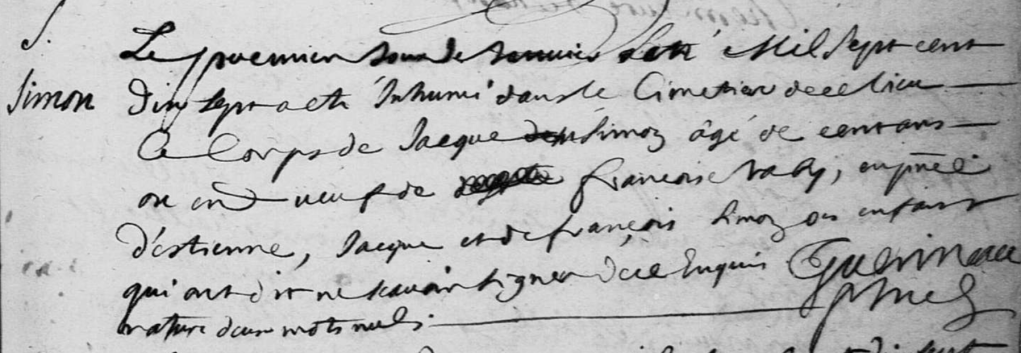 S.
Simon
Le premier Jour de Janvier Mil sept cent
dix sept a eté Inhumé dans le Cimetiere de ce lieu
le Corps de Jacque Simon âgé de cent ans
ou en veuf de françoise en pnce
d'estienne, Jacque et de françois Simon ses enfants
qui ont dit ne scavoir signer de ce Enquis Guerineau
rature deux mots nuls. pr